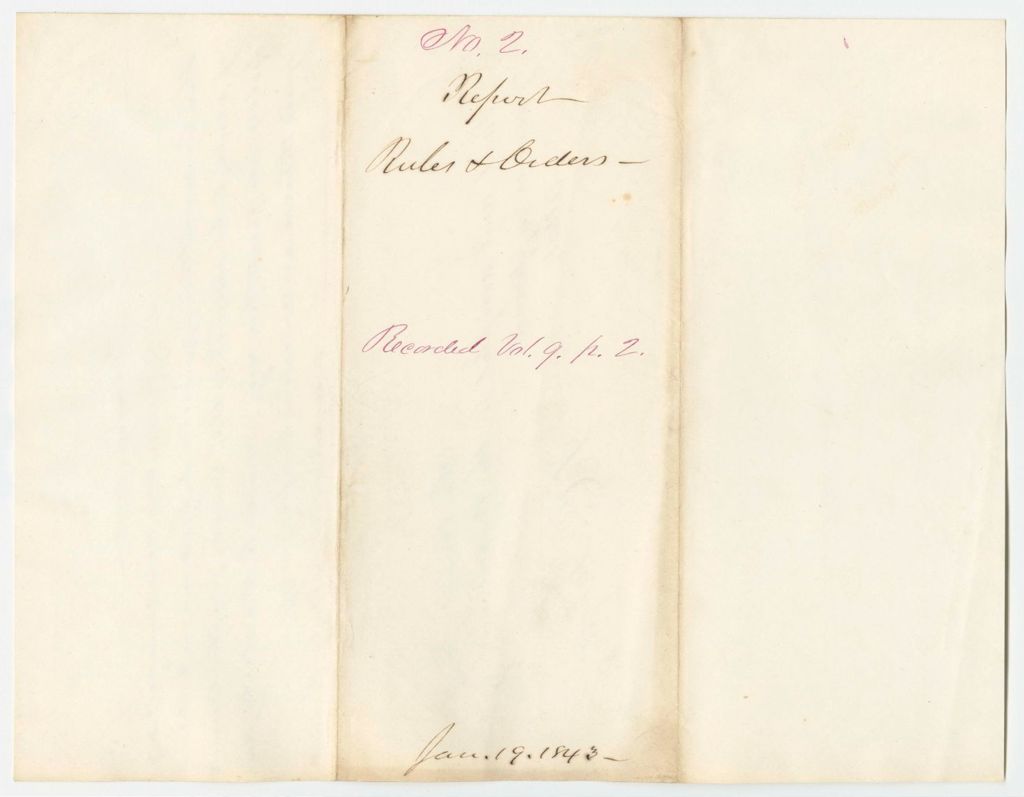 No. 2.
Report—
Rules & Orders—
Recorded Vol. 9. p. 2.
Jan. 19. 1843—